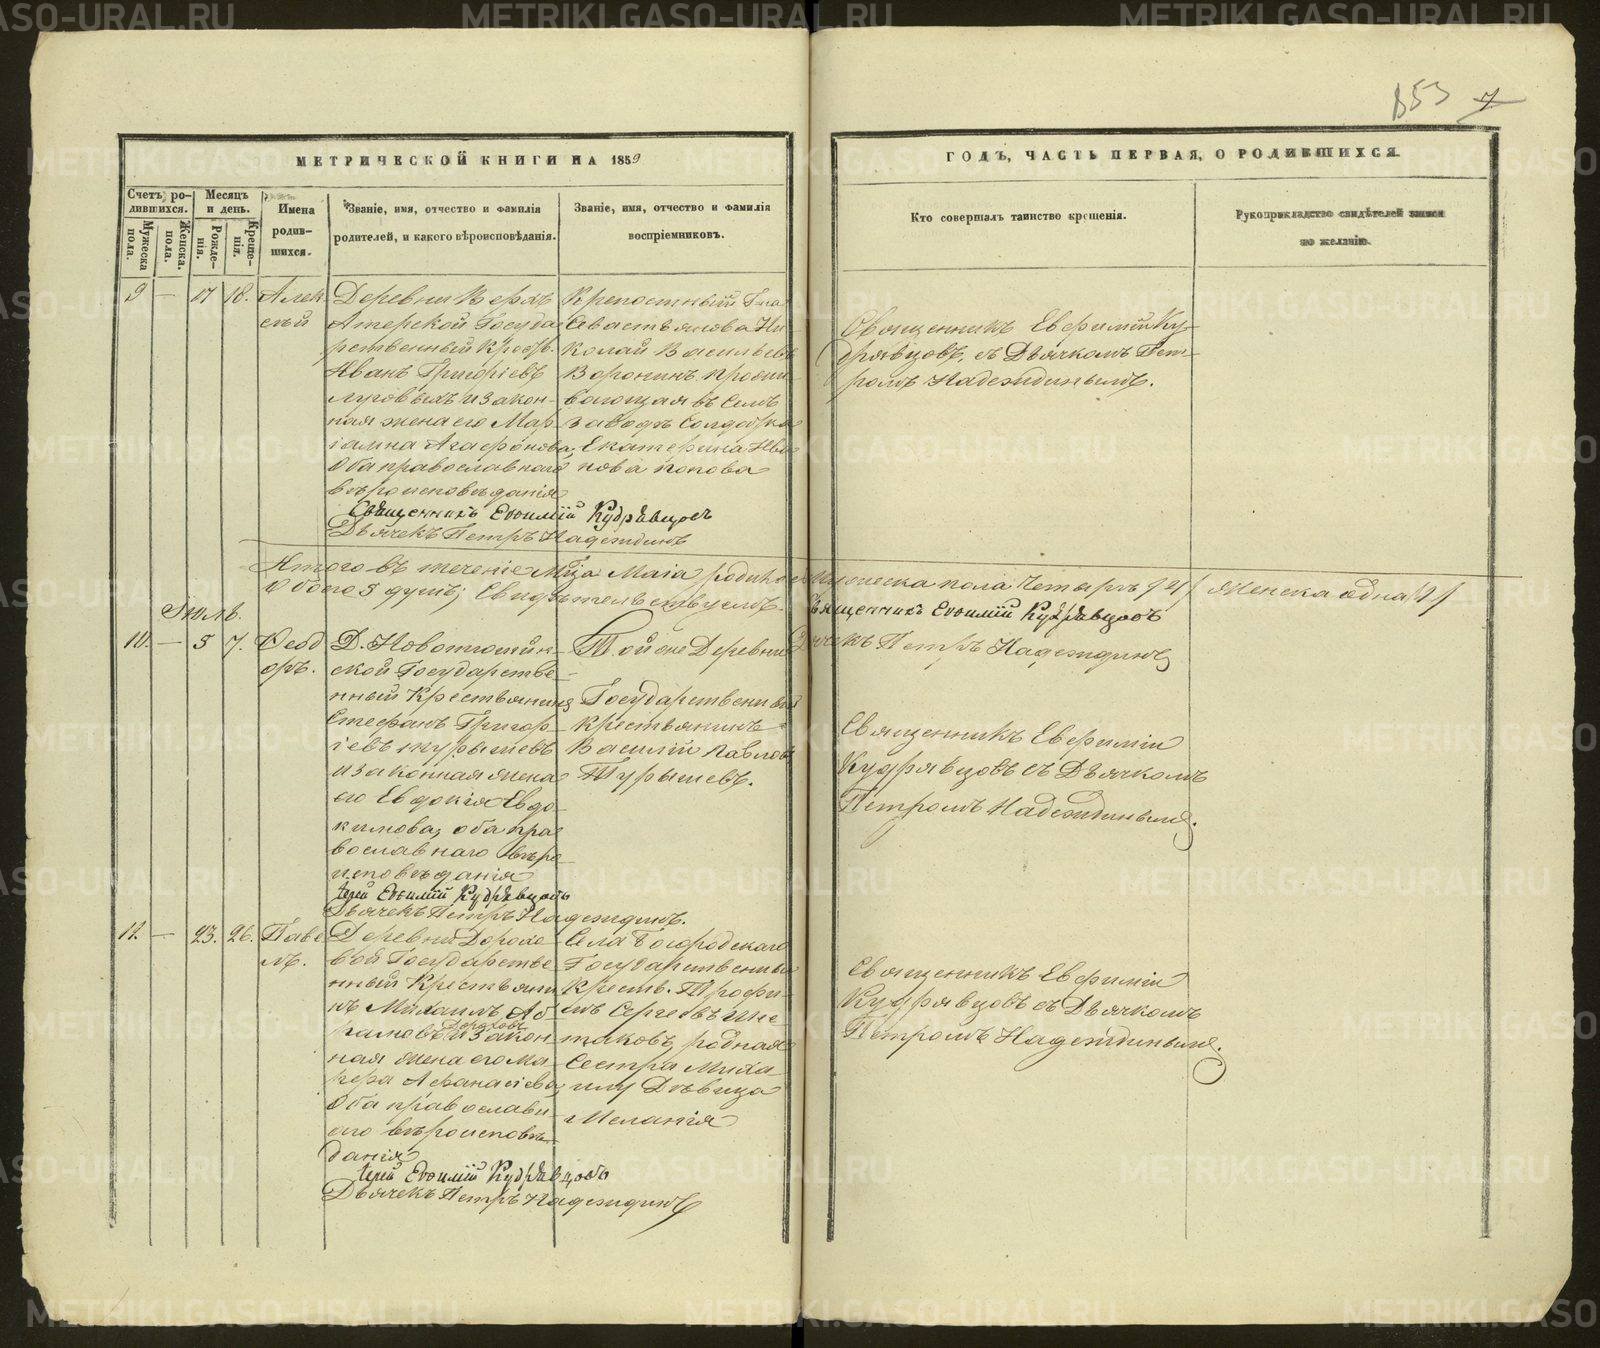 853 7
МЕТРИЧЕСКОЙ КНИГИ НА 1859
ГОДЪ, ЧАСТЬ ПЕРВАЯ, О РОДИВШИХСЯ.
Счетъ ро-
дившихся.
Мужеска пола.
Женска. пола.
Месяцъ
и день.
Рожде-
нія.
Креще-
нія.
Имена
родив-
шихся.
Званіе, имя, отчество и фамилія
родителей, и какого вѣроисповѣданія.
Званіе, имя, отчество и фамилія
воспріемниковъ.
Кто совершалъ таинство крещенія.
Рукоприкладство свидѣтелей записи
по желанію.
9 — 17 18. Алек-
сѣй
Деревни Верхъ
Атерской Государ
рственный Крестъ.
Иванъ Григоріевъ
и закон-
ная жена его Мар
іамна Агафонова,
Оба православнаго
вѣроисповѣданія
Священникъ Евѳимій Кудрявцовъ
Дьячекъ Петръ Надеждинъ
Крепостный Г-на
Севастьянова Ни-
колай Васильевъ
Воронинъ прожи
вающая въ Семъ
заводѣ Солдатка
Екатерина Ива
нова Попова
Священникъ Евфимій Ку-
дрявцовъ, съ Дьячкомъ Пет-
ромъ Надеждинымъ.
Итого въ теченіе М-ца Маія родилось Мужеска пола четыре /4/ Женска одна /1/
Обоего 5 душъ; Свидѣтельствуемъ. Священникъ Евѳимій Кудрявцовъ
Дьячекъ Петръ Надеждинъ
Іюль.
10. — 5 7. Ѳеод
оръ.
Д. Новотошин-
ской Государстве
нный Крестьянинъ
Стефанъ Григор
іевъ Турышевъ
и законная жена
его Евдокія Евдо-
кимова, оба пра
вославнаго вѣро
исповѣданія
Іерей Евѳимій Кудрявцовъ
Дьячекъ Петръ Надеждинъ.
Той же Деревни
Государственный
крестьянинъ
Василій Павловъ
Турышевъ.
Священникъ Евфимій
Кудрявцовъ съ Дьячкомъ
Петромъ Надеждинымъ.
11. — 23. 26. Паве
лъ.
Деревни Дорохо
вой Государстве
нный Крестьяни
нъ Михаилъ Аб
рамовъ Дороховъ и закон
ная жена его Ма
Афанасіева,
Оба православн
аго вѣроисповѣ
данія
Іерей Евѳимій Кудрявцовъ
Дьячекъ Петръ Надеждинъ
Села Богородскаго
Государственный
Крест. Трофи-
мъ Сергѣевъ Ше
стаковъ, родная
Сестра Миха
илу Дѣвица
Меланія
Священникъ Евфимій
Кудрявцовъ съ Дьячкомъ
Петромъ Надеждинымъ.
METRIKI.GASO-URAL.RU